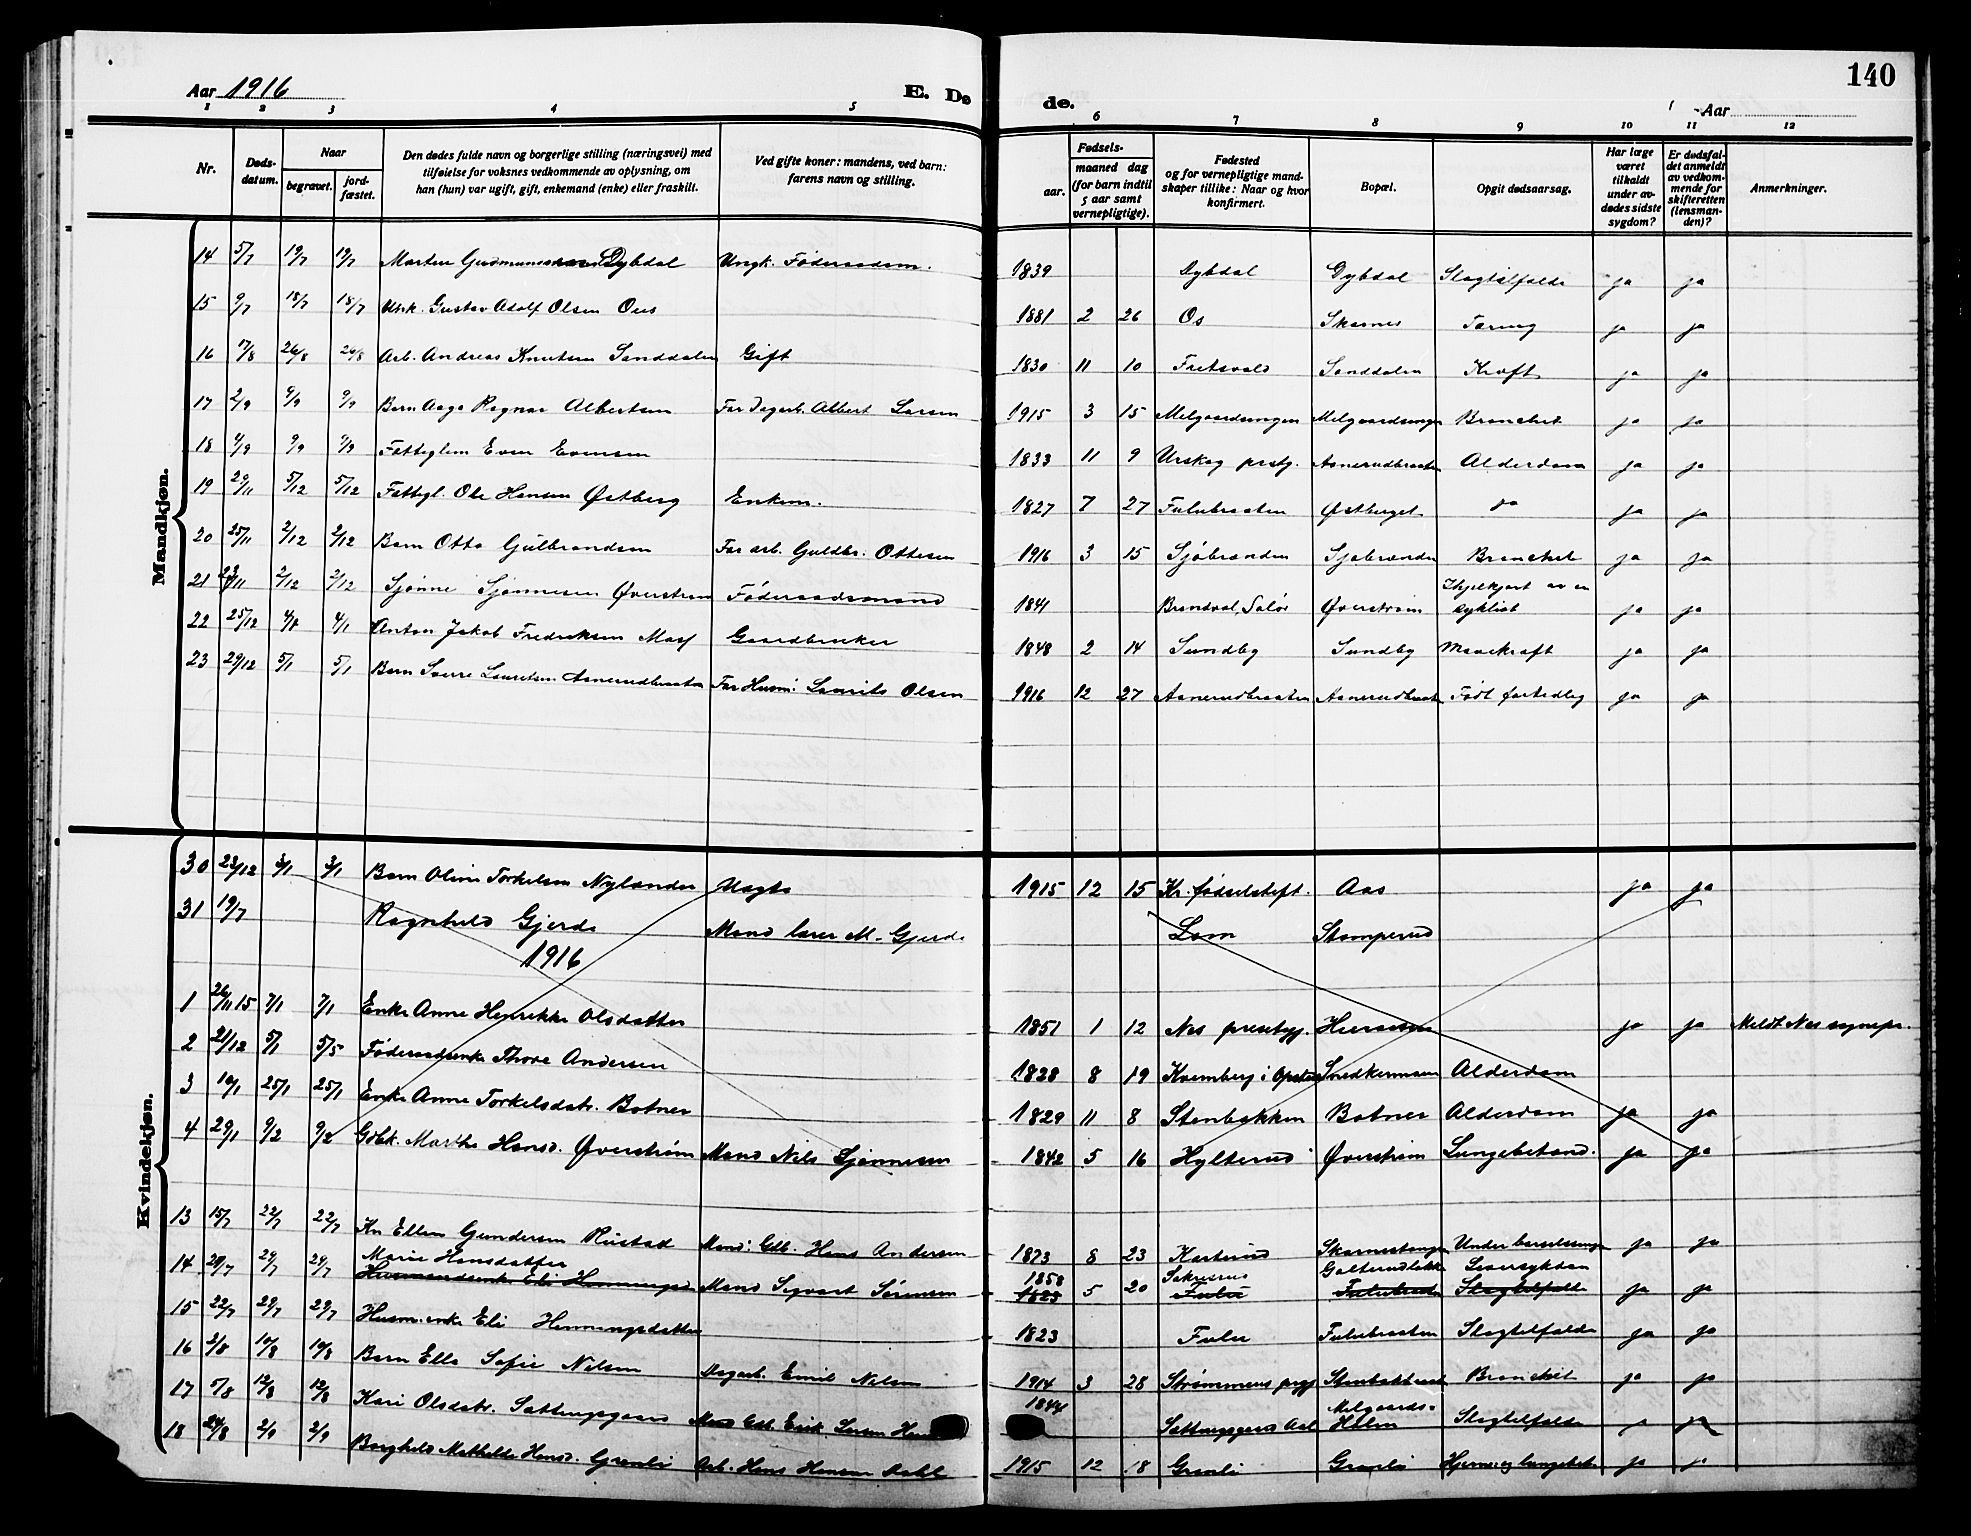 140
Aar 1916 E. Dø de. Aar
1 2 3 4 5 6 7 8 9 10 11 12
Nr. Døds-datum. Naar begravet. jord-fæstet. Den dødes fulde navn og borgerlige stilling (næringsvei) med tilføielse for voksnes vedkommende av oplysning, om han (hun) var ugift, gift, enkemand (enke) eller fraskilt. Ved gifte koner: mandens, ved barn: farens navn og stilling. Fødsels- aar. maaned dag (for barn indtil 5 aar samt vernepligtige). Fødested og for vernepligtige mandskaper tillike: Naar og hvor konfirmert. Bopæl. Opgit dødsaarsag. Har læge været tilkaldt under avdødes sidste sygdom? Er dødsfaldet anmeldt av vedkommende for skifteretten (lensmanden)? Anmerkninger.
Mandkjøn.
14 5/7 19/7 19/7 Morten Gudmundsen Dybdal Ungk. Føderaadsm. 1839 Dybdal Dybdal Slagtilfælde ja ja
15 9/7 18/7 18/7 Unk. Gustav Adolf Olsen Ous 1881 2 26 Os Skarnes Tæring ja ja
16 17/8 26/8 26/8 Arb. Andreas Knutsen Sanddalen Gift 1830 11 10 Fretsvold Sanddalen Kræft ja ja
17 2/9 9/9 9/9 Barn Aage Ragnar Albertsen Far Dagarb. Albert Larsen 1915 3 15 Melgaardsengen Melgaardsengen Bronchit ja ja
18 4/9 9/9 9/9 Fattiglem Even Evensen 1833 11 9 Urskog prstg. Asnerudbraaten Alderdom ja ja
19 29/11 5/12 5/12 Fattigl. Ole Hansen Østberg Enkem. 1827 7 27 Fulubraaten Østberget do ja ja
20 25/11 2/12 2/12 Barn Otto Gulbrandsen Far arb. Guldbr. Ottesen 1916 3 15 Sjøbrænden Sjøbrænden Bronchit ja ja
21 23/11 2/12 2/12 Sjønne Sjønnesen Øverstrøm Føderaadsmand 1841 Brandval, Solør Øverstrøm Ihjelkjørt av en cyklist ja ja
22 25/12 4/1 4/1 Anton Jakob Fredriksen Gaardbruker 1848 2 14 Sundby Sundby Mavekræft ja ja
23 29/12 5/1 5/1 Barn Sverre Lauritsen Asnerudbraaten Far Husm. Laurits Olsen 1916 12 27 Asnerudbraaten Asnerudbraaten Født fortidlig ja ja
Kvindekjøn.
30 23/12 3/1 3/1 Barn Olive Torkelsen Nylander Uægte 1915 12 15 Kr. fødselsstift. Aas ja ja
31 19/7 Ragnhild Gjerde Mand lærer M. Gjerde Lom Stomperud
1916
1 26/11 15 7/1 7/1 Enke Anne Henrikke Olsdatter 1851 1 12 Nes prestegj. ja ja Meldt Nes sognepr.
2 21/12 5/1 5/5 Føderaadsenke Thore Andersen 1828 8 19 Kvemberg i Snedkermoen Alderdom
3 19/1 25/1 25/1 Enke Anne Torkelsdatr. Botner 1829 11 8 Stenbakken Botner Alderdom ja ja
4 29/1 9/2 9/2 Gbk. Marthe Hansd. Øverstrøm Mand Nils Sjønnesen 1842 5 16 Hylterud Øverstrøm Lungebetænd. ja ja
13 15/7 22/7 22/7 Kn Ellen Gundersen Rustad Mand: Gdb. Hans Andersen 1873 8 23 Karterud Skarnestangen Under barselseng ja ja
14 20/7 29/7 29/7 Marie Hansdatter Husmandsenke Eli Henningsd Mand Sigvart Sørensen 1858 1823 5 20 Sakserud Fulu Galterudløkk Fulubraaten Leversykdom Slagtilfælde ja ja
15 22/7 29/7 29/7 Husm.enke Eli Henningsdatter 1823 Fulu Fulubraaten Slagtilfælde ja ja
16 2/8 10/8 10/8 Barn Ella Sofie Nilsen Dagarb. Emil Nilsen 1914 3 28 Strømmens prgj Stenbakk Bronchit ja ja
17 7/8 12/8 12/8 Kari Olsdatr. Sætningsgaard Mand Gdb. Erik Larsen 1844 Melgaards-Holm Slagtilfælde ja ja
18 24/8 2/9 2/9 Borghild Mathilde Hansd. Grønli Arb. Hans Hansen Dahl 1915 12 18 Grønli Grønli Hjerne og lungebet. ja ja